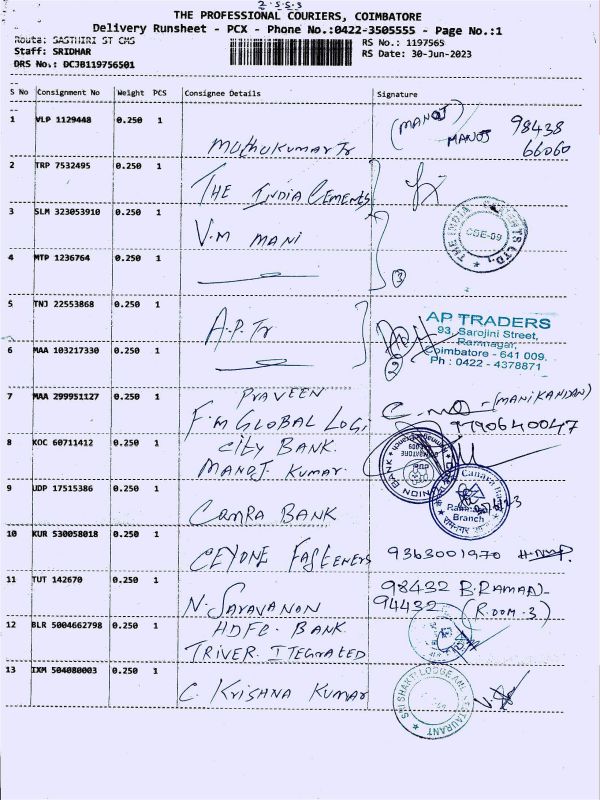 2.5.5.3
THE PROFESSIONAL COURIERS, COIMBATORE
Delivery Runsheet - PCX - Phone No.:0422-3505555 - Page No.:1
Route: SASTHIRI ST CMS
Staff: SRIDHAR
DRS No.: DCJB119756501
RS No.: 1197565
RS Date: 30-Jun-2023
S No Consignment No Weight PCS Consignee Details Signature
1 VLP 1129448 0.250 1 (MANOJ) MANOJ 98438
Muthukumar Tr 66060
2 TRP 7532495 0.250 1
THE INDIA Cements
3 SLM 323053910 0.250 1
V.M MANI
THE INDIA CEMENTS LTD., CBE-09
4 MTP 1236764 0.250 1
3
5 TNJ 22553868 0.250 1
A.P. Tr
AP TRADERS
93, Sarojini Street,
Ramnagar,
Coimbatore - 641 009.
Ph : 0422 - 4378871
6 MAA 103217330 0.250 1
7 MAA 299951127 0.250 1 PRAVEEN (MANIKANDAN)
F.M GLOBAL LOGI
8 KOC 60711412 0.250 1 CITY BANK.
MANOJ KUMAR.
UNION BANK
9 UDP 17515386 0.250 1
CANRA BANK
Canara Bank
Branch
10 KUR 530058018 0.250 1
CEYONE FASTENERS 9363001970
11 TUT 142670 0.250 1 98432 B.RAMARJ-
N. SARAVANON 94432 (ROOM-3)
12 BLR 5004662798 0.250 1 HDFC. BANK.
TRIVER. ITEGRATED
13 IXM 504080003 0.250 1
C. KRISHNA KUMAR
SRI SHAKTI LODGE AND RESTAURANT